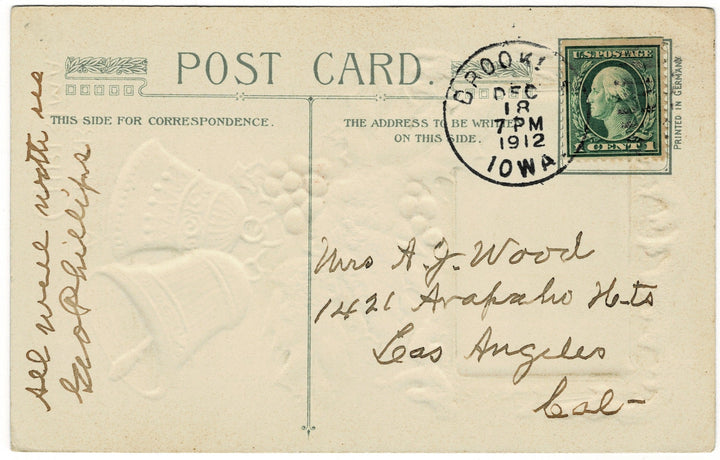 POST CARD.
THIS SIDE FOR CORRESPONDENCE.
THE ADDRESS TO BE WRITTEN
ON THIS SIDE.
BROOK
DEC
18
7 PM
1912
IOWA
U.S. POSTAGE
1 CENT 1
PRINTED IN GERMANY
all well north sea
Geo Phillips
Mrs A. J. Wood
1421 Arapaho
Los Angeles
Cal-